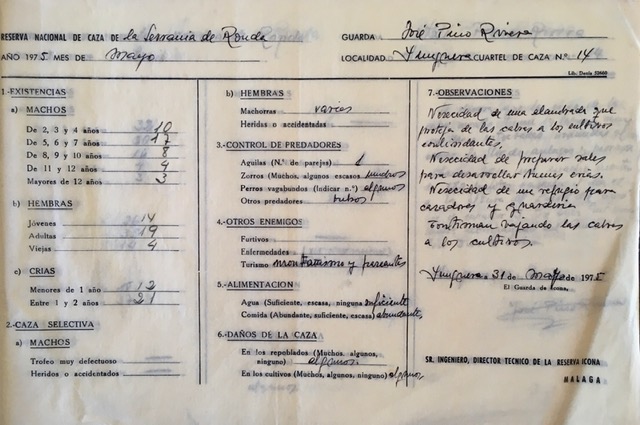 RESERVA NACIONAL DE CAZA DE la Serrania de Ronda
AÑO 1975 MES DE Mayo
GUARDA José Pino Rivera
LOCALIDAD Yunquera CUARTEL DE CAZA N.º 14
1.-EXISTENCIAS
a) MACHOS
De 2, 3 y 4 años 10
De 5, 6 y 7 años 17
De 8, 9 y 10 años 8
De 11 y 12 años 4
Mayores de 12 años 3
b) HEMBRAS
Jóvenes 14
Adultas 19
Viejas 4
c) CRIAS
Menores de 1 año 12
Entre 1 y 2 años 21
2.-CAZA SELECTIVA
a) MACHOS
Trofeo muy defectuoso
Heridos o accidentados
b) HEMBRAS
Machorras varias
Heridas o accidentadas
3.-CONTROL DE PREDADORES
Aguilas (N.º de parejas) 1
Zorros (Muchos, algunos escasos) muchos
Perros vagabundos (Indicar n.º) algunos
Otros predadores buhos
4.-OTROS ENEMIGOS
Furtivos
Enfermedades
Turismo montañismo y
5.-ALIMENTACION
Agua (Suficiente, escasa, ninguna) suficiente
Comida (Abundante, suficiente, escasa) abundante
6.-DAÑOS DE LA CAZA
En los repoblados (Muchos, algunos,
ninguno) algunos
En los cultivos (Muchos, algunos, ninguno) algunos
Lib. Denis 52660
7.-OBSERVACIONES
Necesidad de una alambrada que
proteja de las cabras a los cultivos
colindantes.
Necesidad de preparar sales
para desarrollar buenas crias.
Necesidad de un refugio para
cazadores y guarderia
Continuan bajando las cabras
a los cultivos
Yunquera 31 de Mayo de 1975
El Guarda de Icona,
SR. INGENIERO, DIRECTOR TECNICO DE LA RESERVA ICONA
MALAGA